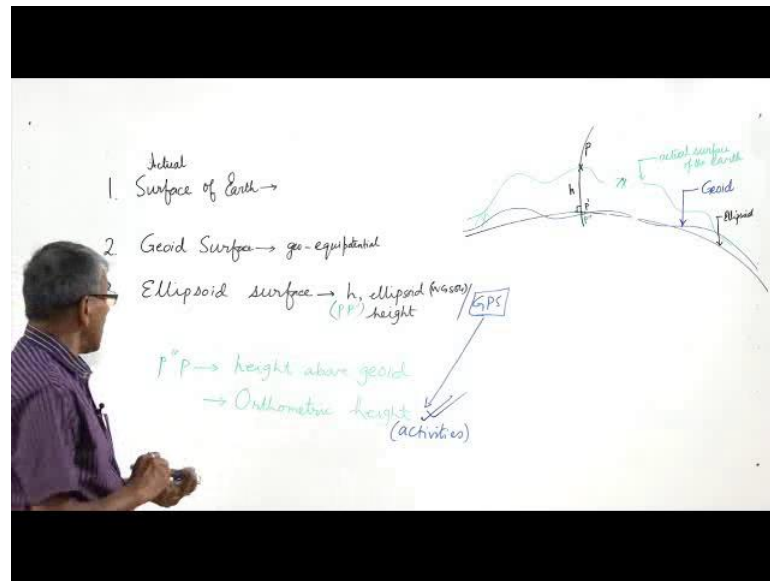 Actual
1. Surface of Earth →
2. Geoid Surface → geo-equipotential
Ellipsoid surface → h, ellipsoid (WGS84) / GPS
(PP') height
P"P → height above geoid
→ Orthometric height
(activities)
P
h
P'
P"
actual surface
of the earth
Geoid
Ellipsoid